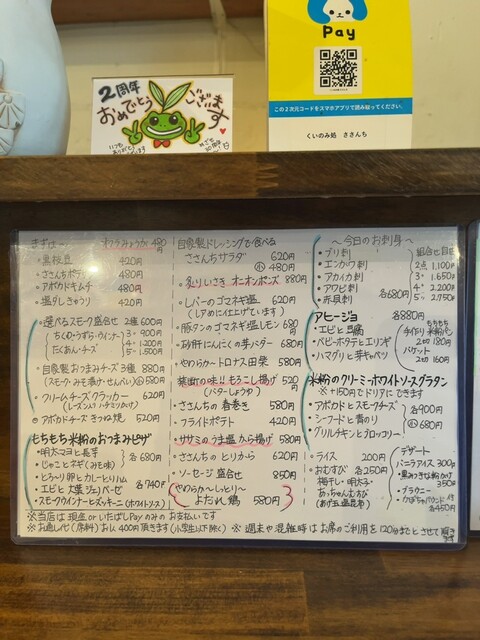 Pay
この2次元コードをスマホアプリで読み取ってください。
くいのみ処 ささんち
2周年
おめでとう
ございます
いつも
ありがとう
まずは…
420円
・ささんちポテサラ 480円
・アボカドキムチ 480円
・塩だしきゅうり 420円
・選べるスモーク盛合せ 2種 600円
ちくわ・うずら・ウインナー
たくあん・チーズ
3・900円
4・1200円
5・1,500円
・自家製おつまみチーズ3種 880円
(スモーク・みそ漬け・せんべい) 小 580円
・クリームチーズクラッカー 620円
(レーズン入り ハチミツがけ)
・アボカドチーズきつね焼 520円
もちもち米粉のおつまみピザ
・明太マヨと長芋
・じゃことネギ(みそ味)
各680円
・とろ〜り卵とカレーとりハム
・エビと大葉ジェノベーゼ
・スモークウインナーとズッキーニ(ホワイトソース)
各740円
自家製ドレッシングで食べる
ささんちサラダ 620円
小 480円
・炙りいさき オニオンポンズ 880円
・レバーのゴマネギ塩 620円
(レアめに仕上げています)
・豚タンのゴマネギ塩レモン 680円
・砂肝にんにくの芽バター 680円
・やわらか〜トロナス田楽 580円
・禁断の味!!もろこし揚げ 520円
(バターしょうゆ)
・ささんちの春巻き 580円
・フライドポテト 420円
・ササミのうま塩から揚げ 580円
・ささんちのとりから 620円
・ソーセージ盛合せ 850円
やわらか〜しっとり〜
よだれ鶏 580円
〜今日のお刺身〜
・ブリ刺
・エンガワ刺
・アカイカ刺
・アワビ刺
・赤貝刺
各680円
2点 1,100円
3・1,650円
4・2,200円
5・2,750円
アヒージョ 各880円
・エビと豆腐
・ベビーホタテとエリンギ
・ハマグリと芽キャベツ
もちもち
手作り米粉パン
2切 180円
バケット
2切 160円
米粉のクリーミーホワイトソースグラタン
※+150円でドリアにできます
・アボカドとスモークチーズ
・シーフードと青のり
・グリルチキンとブロッコリー
各900円
小 680円
・ライス 200円
・おむすび 各250円
梅干し・明太子・
あっちゃんおむすび
デザート
・バニラアイス 300円
・黒みつきな粉かけ 350円
・ブラウニー
各450円
※当店は 現金orいたばしPayのみのお支払いです
※お通し代(席料)お1人400円頂きます(小学生以下除く) ※週末や混雑時はお席のご利用を120分までとさせて頂きます